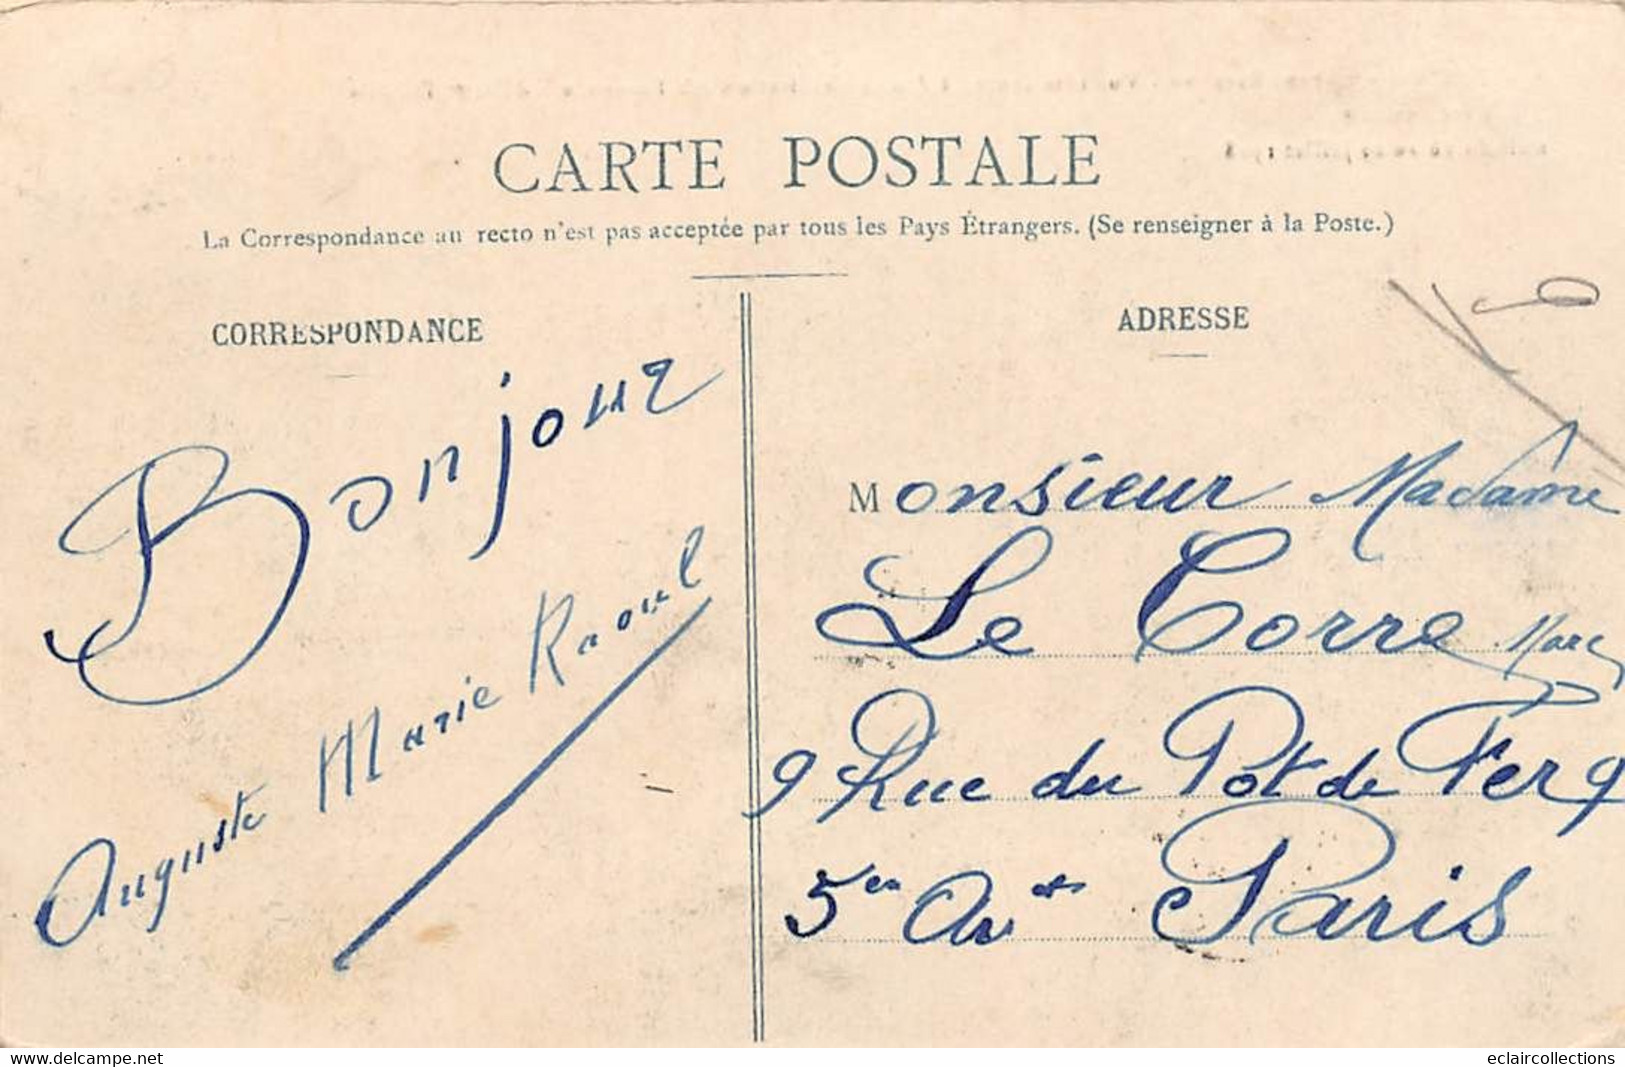 CARTE POSTALE
La Correspondance au recto n'est pas acceptée par tous les Pays Étrangers. (Se renseigner à la Poste.)
CORRESPONDANCE
Bonjour
Auguste Marie Raoul
ADRESSE
Monsieur Madame
Le Corre Marc
9 Rue du Pot de Fer 9
5em Art Paris
www.delcampe.net
eclaircollections